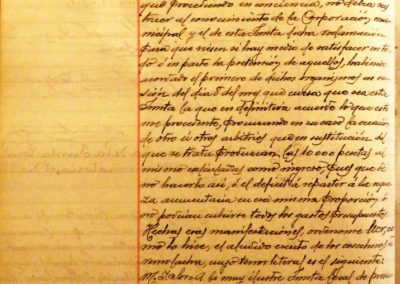 que procediendo en conciencia, no debia sus
traer al conocimiento de la Corporación, mu
nicipal y el de esta Junta dicha reclamación
para que viesen si hay medio de satisfacer en to
do ó en parte la pretensión de aquellos, habiendo
acordado el primero de dichos organismos en se
sión del dia 8 del mes que cursa que sea esta
Junta la que en definitiva acuerde lo que esti
me procedente, procurando en su caso la creación
de otro ú otros arbitrios que en sustitución del
que se trata produzcan las 10.000 pesetas al
mismo calculadas como ingreso, pues que de
no hacerlo asi, ó el deficit á repartir á la rique
za aumentaria en esa misma proporción, ó
no podrian cubrirse todos los gastos presupuestos.
Hechas esas manifestaciones, ordenome leer, co
mo lo hice, el aludido escrito de los cosecheros de
remolacha, cuyo tenor literal es el siguiente:
la muy ilustre Junta local de presu